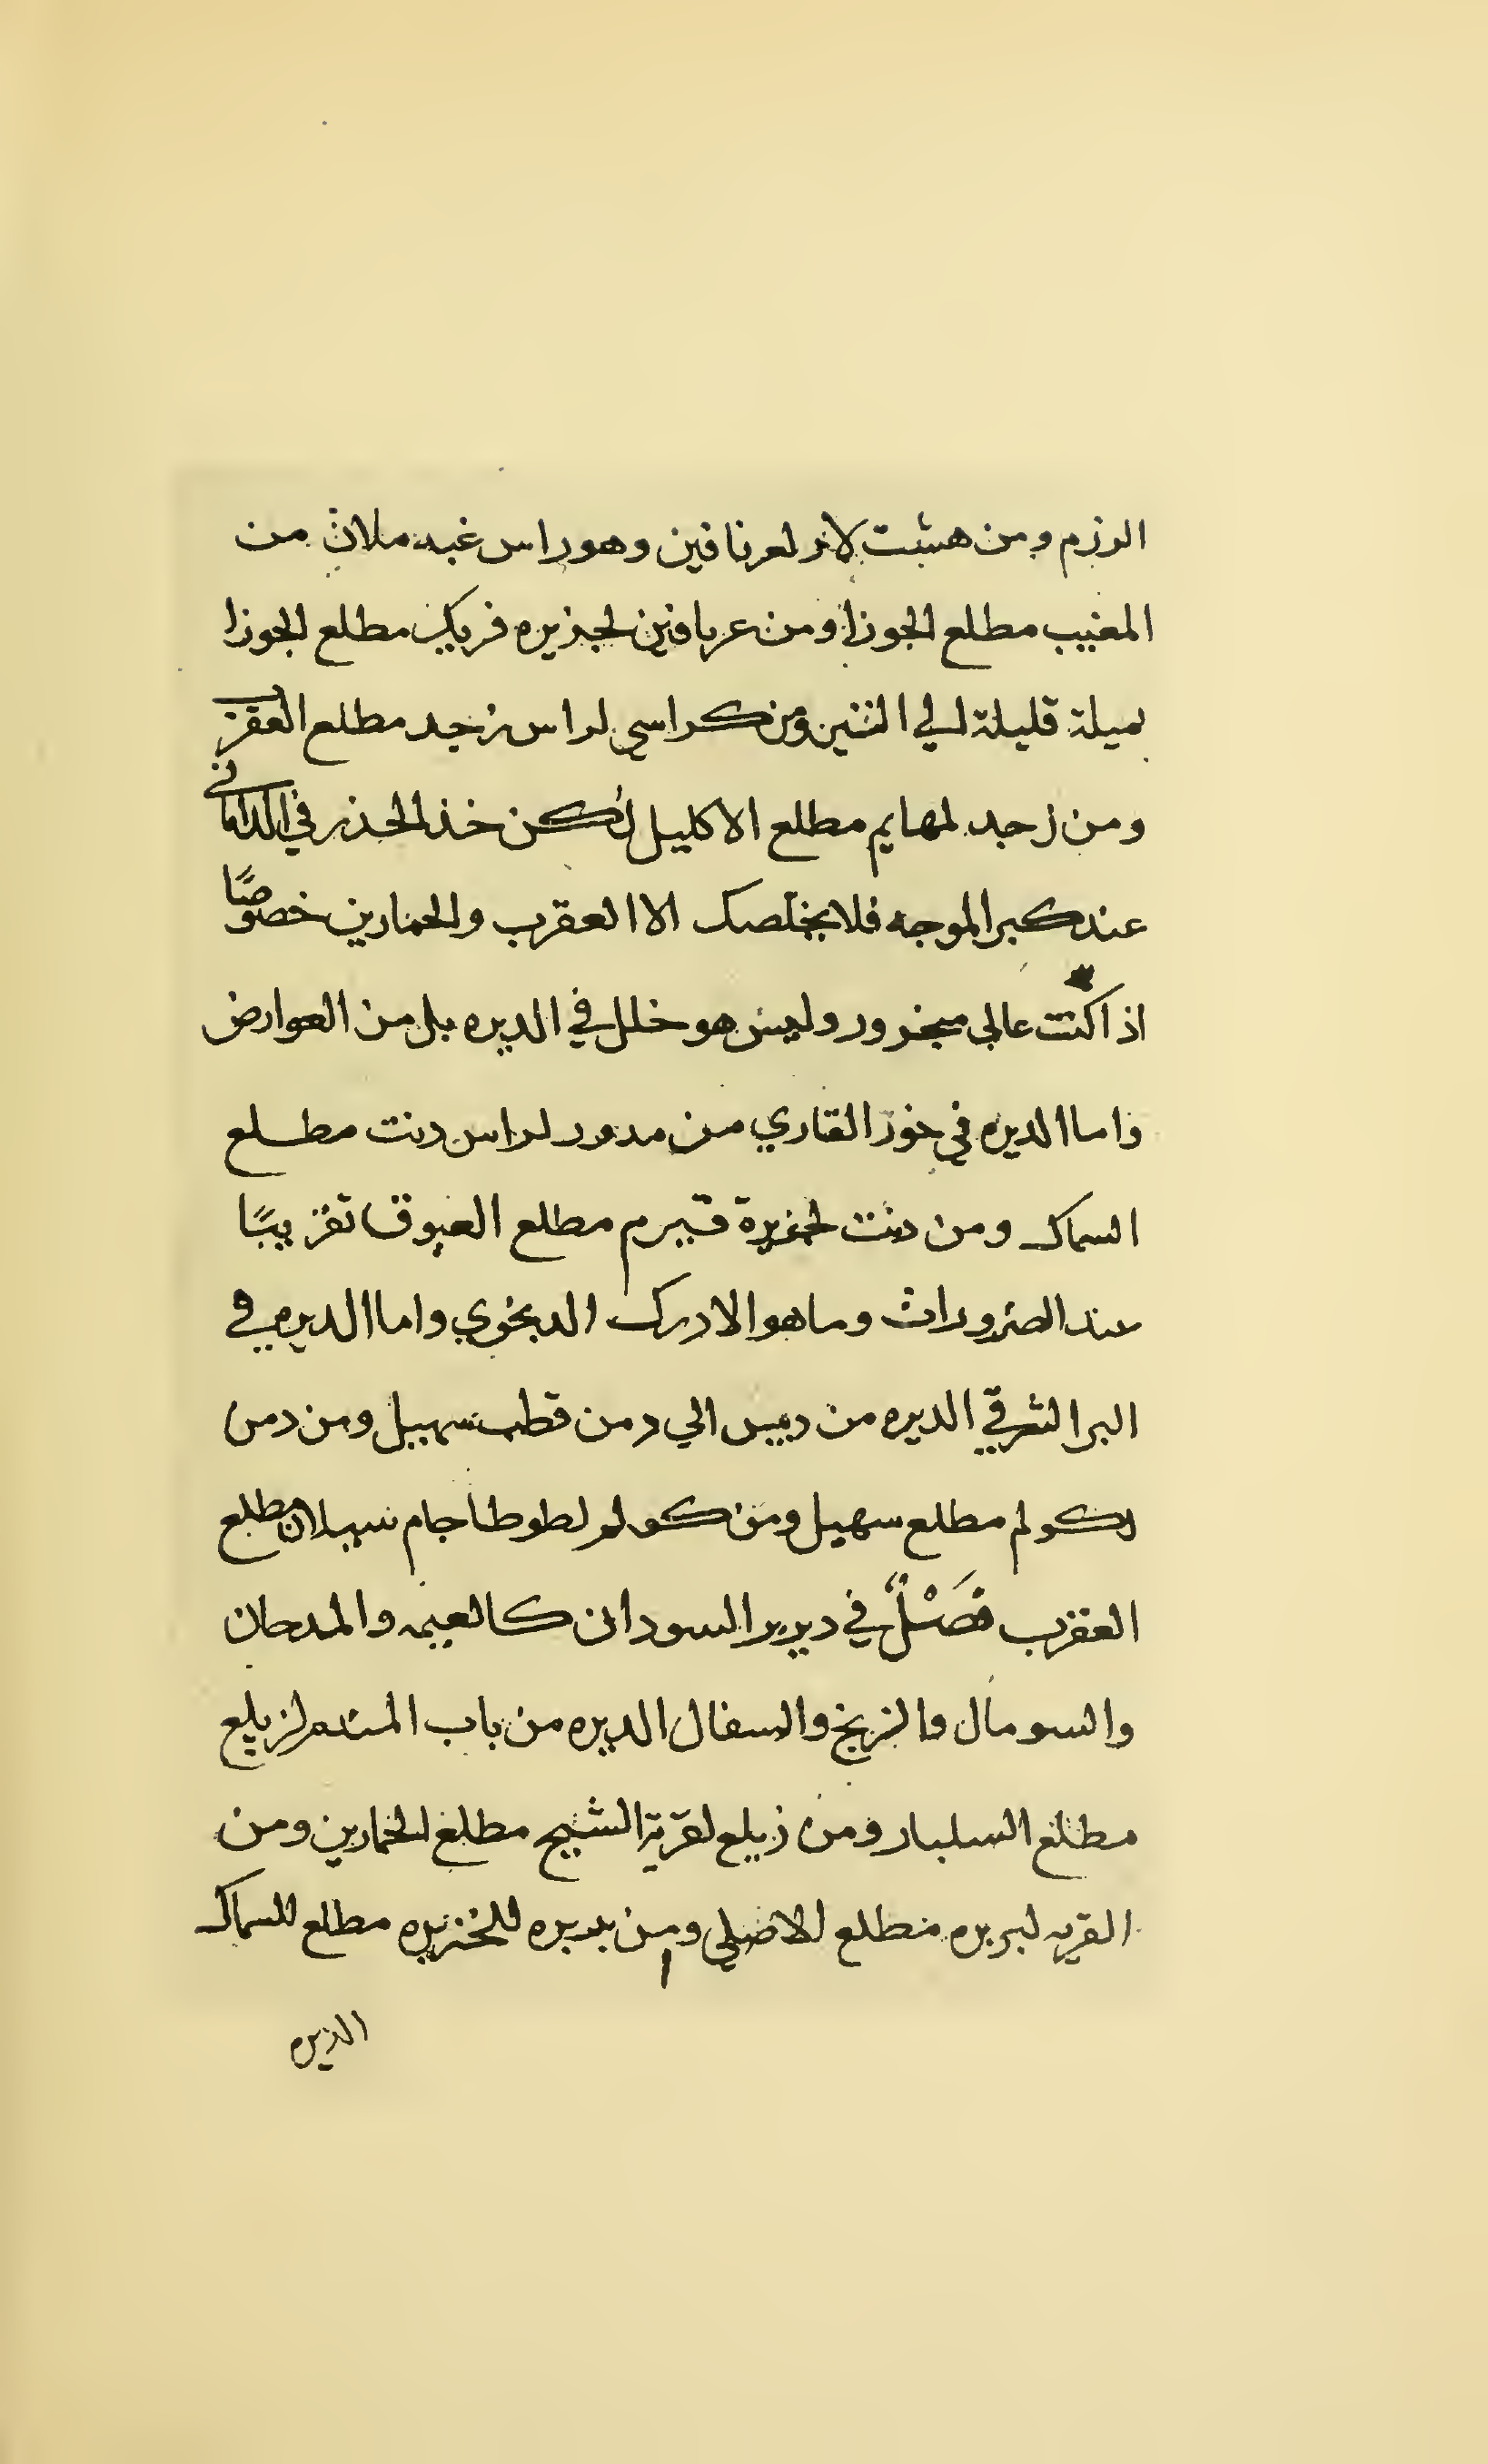 الرزم ومن هشت لار لعرنافين وهو راس غبه ملاث من
المغيب مطلع الجوزا ومن عربافين لجزيره فريك مطلع الجوزا
بميلة قليلة الي التنين ومن كراسي لراس زجد مطلع العقرب
ومن زجد لمهايم مطلع الاكليل لكن خذ الحذر في الداماني
عند كبر الموجه فلا يخلصك الا العقرب والحمارين خصوصًا
اذا كنت عالي مجرور وليس هو خلل في الديره بل من العوارض
واما الديره في خور القاري من مدور لراس دنت مطلع
السماك ومن دنت لجزيرة قيرم مطلع العيوق تقريبًا
عند الضرورات وما هو الا درك الديخوي واما الديره في
البر الشرقي الديره من دييس الي دمن قطب سهيل ومن دمن
لكولم مطلع سهيل ومن كولم لطوطاجام سيلان مطلع
العقرب فَصْلٌ في دير بر السودان كالعيمه والمدحان
والسومال والزنج والسفال الديره من باب المندم لزيلع
مطلع السلبار ومن زيلع لقرية الشيح مطلع الحمارين ومن
القريه لبربره مطلع الاصلي ومن بربره للخنزيره مطلع السماك
الديره